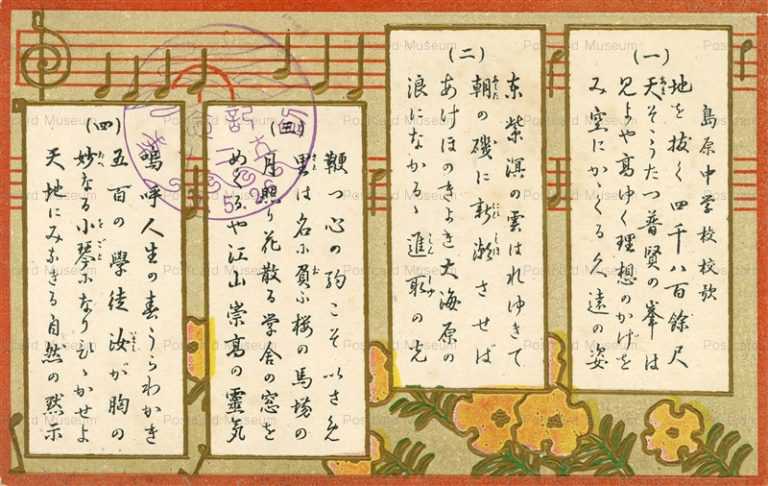 島原中学校校歌
(一)
地を拔く四千八百餘尺
天そゝりたつ普賢の峯は
見よや高ゆく理想のかげを
み空にかくる久遠の姿
(二)
東紫溟の雲はれゆきて
朝の磯に新潮させば
あけぼのきよき大海原の
浪になかるゝ進取の
(三)
鞭つ心の駒こそいさめ
里は名に負ふ桜の馬場の
月照り花散る学舎の窓を
めぐるや江山崇高の靈気
(四)
嗚呼人生の春うらわかき
五百の學徒汝が胸の
妙なる小琴になりひゝかせよ
天地にみなぎる自然の黙示
Postcard Museum